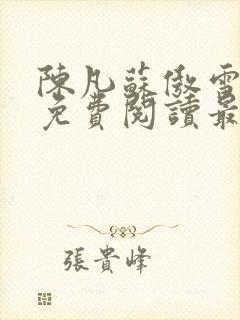 陳凡蘇傲雪
免費閱讀最
張貴峰